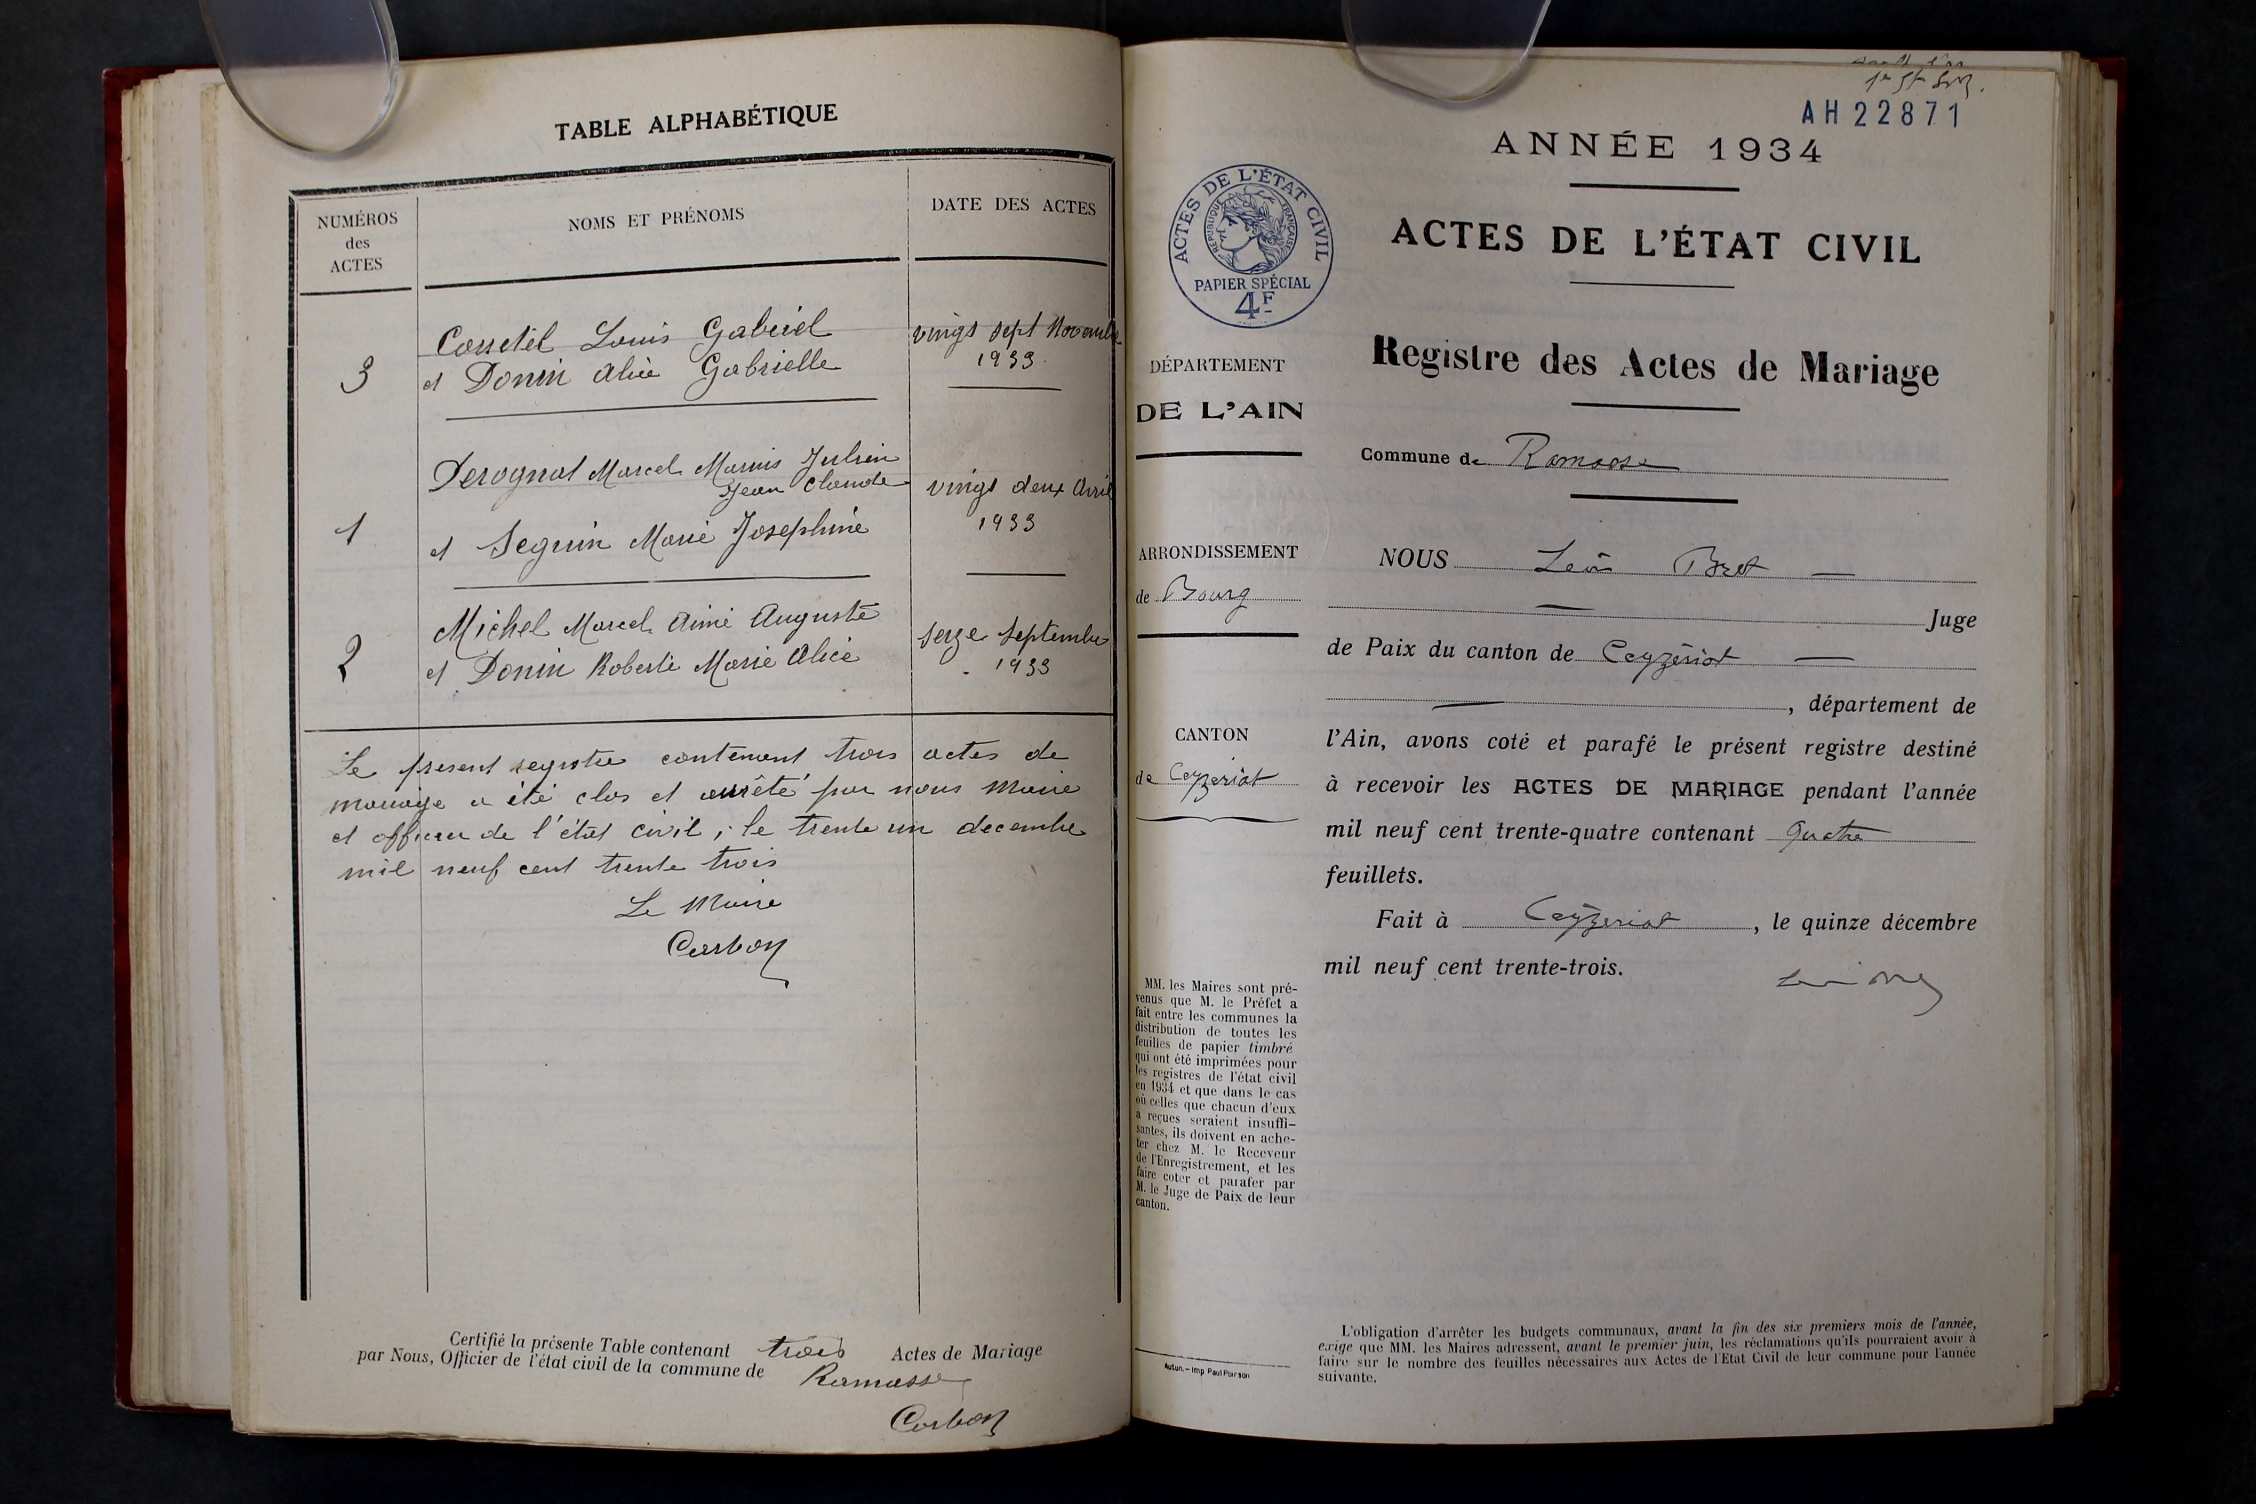 TABLE ALPHABÉTIQUE
NUMÉROS
des
ACTES
NOMS ET PRÉNOMS
DATE DES ACTES
Louis Gabriel
vingt sept Novembre
3
et Donin Alice Gabrielle
1933
Derognat Marcel Marius Julien
Jean Claude
vingt deux Avril
1
et Seguin Marie Josephine
1933
Michel Marcel Aimé Auguste
seize Septembre
2
et Donin Roberte Marie Alice
1933
Le present registre contenant trois actes de
mariage a été clos et arrêté par nous Maire
et officier de l'état civil, le trente un decembre
mil neuf cent trente trois
Le Maire
Carbon
Certifié la présente Table contenant trois Actes de Mariage
par Nous, Officier de l'état civil de la commune de Ramasse
Carbon
AH 22871
ANNÉE 1934
ACTES DE L'ÉTAT CIVIL
RÉPUBLIQUE FRANÇAISE
PAPIER SPÉCIAL
4F
ACTES DE L'ÉTAT CIVIL
Registre des Actes de Mariage
DÉPARTEMENT
DE L'AIN
Commune de Ramasse
ARRONDISSEMENT
de Bourg
CANTON
de Ceyzeriat
NOUS Léon Bret
Juge
de Paix du canton de Ceyzériat
, département de
l'Ain, avons coté et parafé le présent registre destiné
à recevoir les ACTES DE MARIAGE pendant l'année
mil neuf cent trente-quatre contenant quatre
feuillets.
Fait à Ceyzeriat, le quinze décembre
mil neuf cent trente-trois.
MM. les Maires sont pré-
venus que M. le Préfet a
fait entre les communes la
distribution de toutes les
feuilles de papier timbré
qui ont été imprimées pour
les registres de l'état civil
en 1934 et que dans le cas
où celles que chacun d'eux
a reçues seraient insuffi-
santes, ils doivent en ache-
ter chez M. le Receveur
de l'Enregistrement, et les
faire coter et parafer par
M. le Juge de Paix de leur
canton.
Autun. — Imp Paul Poirson
L'obligation d'arrêter les budgets communaux, avant la fin des six premiers mois de l'année,
exige que MM. les Maires adressent, avant le premier juin, les réclamations qu'ils pourraient avoir à
faire sur le nombre des feuilles nécessaires aux Actes de l'Etat Civil de leur commune pour l'année
suivante.